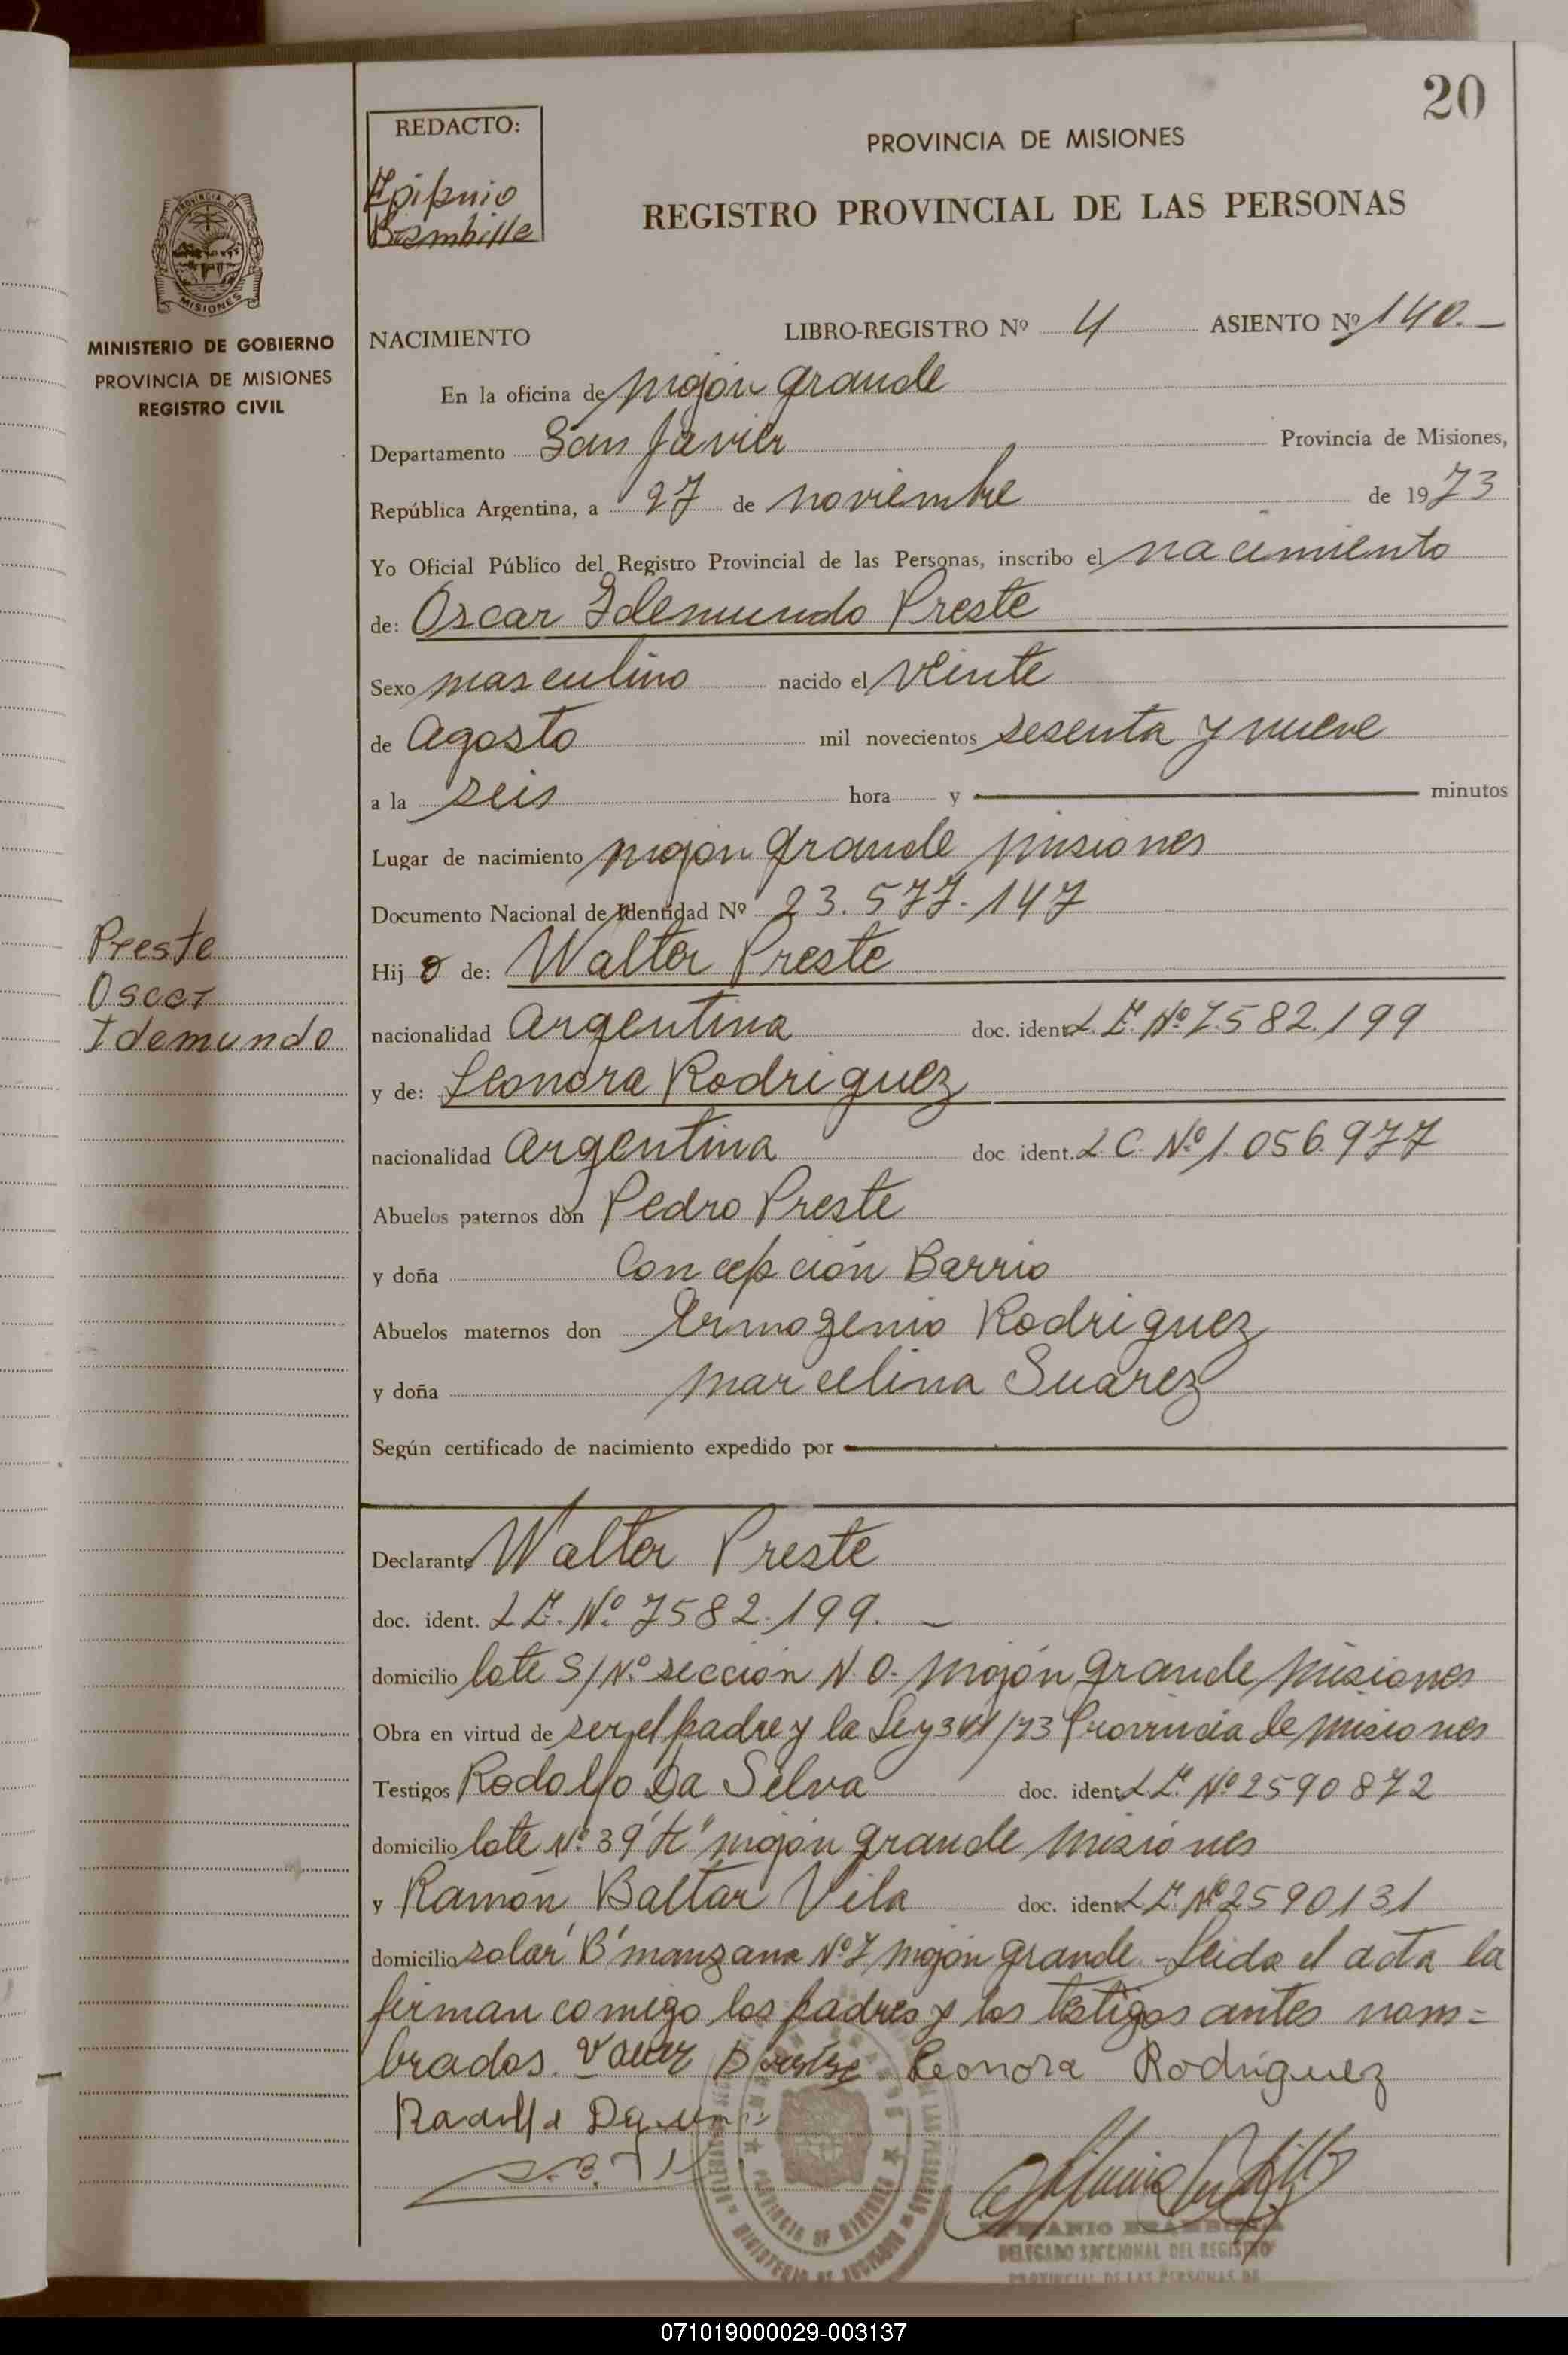 20
REDACTO:
Epifanio
PROVINCIA DE MISIONES
REGISTRO PROVINCIAL DE LAS PERSONAS
MISIONES
MINISTERIO DE GOBIERNO
PROVINCIA DE MISIONES
REGISTRO CIVIL
NACIMIENTO LIBRO-REGISTRO Nº 4 ASIENTO Nº 140.-
En la oficina de mojón grande
Departamento San Javier Provincia de Misiones,
República Argentina, a 27 de noviembre de 1973
Yo Oficial Público del Registro Provincial de las Personas, inscribo el nacimiento
de: Oscar Idemundo Preste
Sexo masculino nacido el veinte
de Agosto mil novecientos sesenta y nueve
a la seis hora y minutos
Lugar de nacimiento mojón grande misiones
Documento Nacional de Identidad Nº 23.577.147
Preste
Oscar
Idemundo
Hijo de: Walter Preste
nacionalidad argentina doc. ident. L.E. Nº 7.582.199
y de: Leonora Rodriguez
nacionalidad argentina doc. ident. L C. Nº 1.056.977
Abuelos paternos don Pedro Preste
y doña Concepción Barrio
Abuelos maternos don Ermogenio Rodriguez
y doña marcelina Suarez
Según certificado de nacimiento expedido por
Declarante Walter Preste
doc. ident. L E. Nº 7582.199. -
domicilio lote S/Nº sección N. O. mojón grande misiones
Obra en virtud de ser el padre y la Ley /73 Provincia de misiones
Testigos Rodolfo Da Silva doc. ident. L E. Nº 2590872
domicilio lote Nº 39 mojón grande misiones
y Ramón Baltar Vila doc. ident. L E. Nº 2590131
domicilio solar "B" manzana Nº 7 mojón grande - Leida el acta la
firman comigo los padres y los testigos antes nom=
brados. Leonora Rodriguez
DELEGADO SECCIONAL DEL REGISTRO
PROVINCIAL DE LAS PERSONAS DE
071019000029-003137